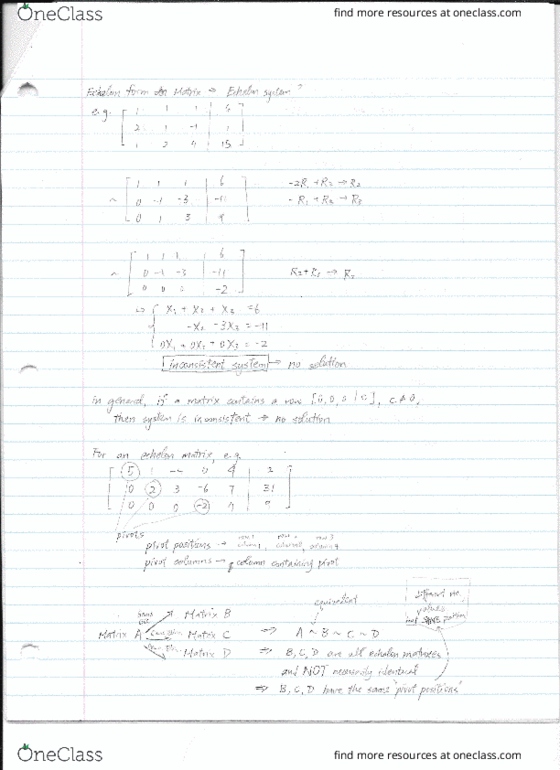 OneClass
find more resources at oneclass.com
Echelon form Matrix ⇒ Echelon system?
e.g. [ 1 1 1 | 6 ]
[ 2 1 -1 | 1 ]
[ 1 2 4 | 15 ]
~ [ 1 1 1 | 6 ]
[ 0 -1 -3 | -11 ] -2R₁ + R₂ → R₂
[ 0 1 3 | 9 ] -R₁ + R₃ → R₃
~ [ 1 1 1 | 6 ]
[ 0 -1 -3 | -11 ] R₂ + R₃ → R₃
[ 0 0 0 | -2 ]
⇒ { X₁ + X₂ + X₃ = 6
-X₂ - 3X₃ = -11
0X₁ + 0X₂ + 0X₃ = -2
inconsistent system → no solution
in general, if a matrix contains a row [0, 0, 0 | c], c≠0,
then system is inconsistent ⇒ no solution
For an echelon matrix, e.g.
[ 5 1 0 4 | 2 ]
[ 0 2 3 -6 7 | 31 ]
[ 0 0 0 -2 ]
pivots
pivot positions →
pivot columns → column containing pivot
equivalent
values
Matrix B
Matrix A Matrix C ⇒ A ~ B ~ C ~ D
Matrix D ⇒ B, C, D are all echelon matrices
and NOT necessarily identical
⇒ B, C, D have the same 'pivot positions'
OneClass
find more resources at oneclass.com